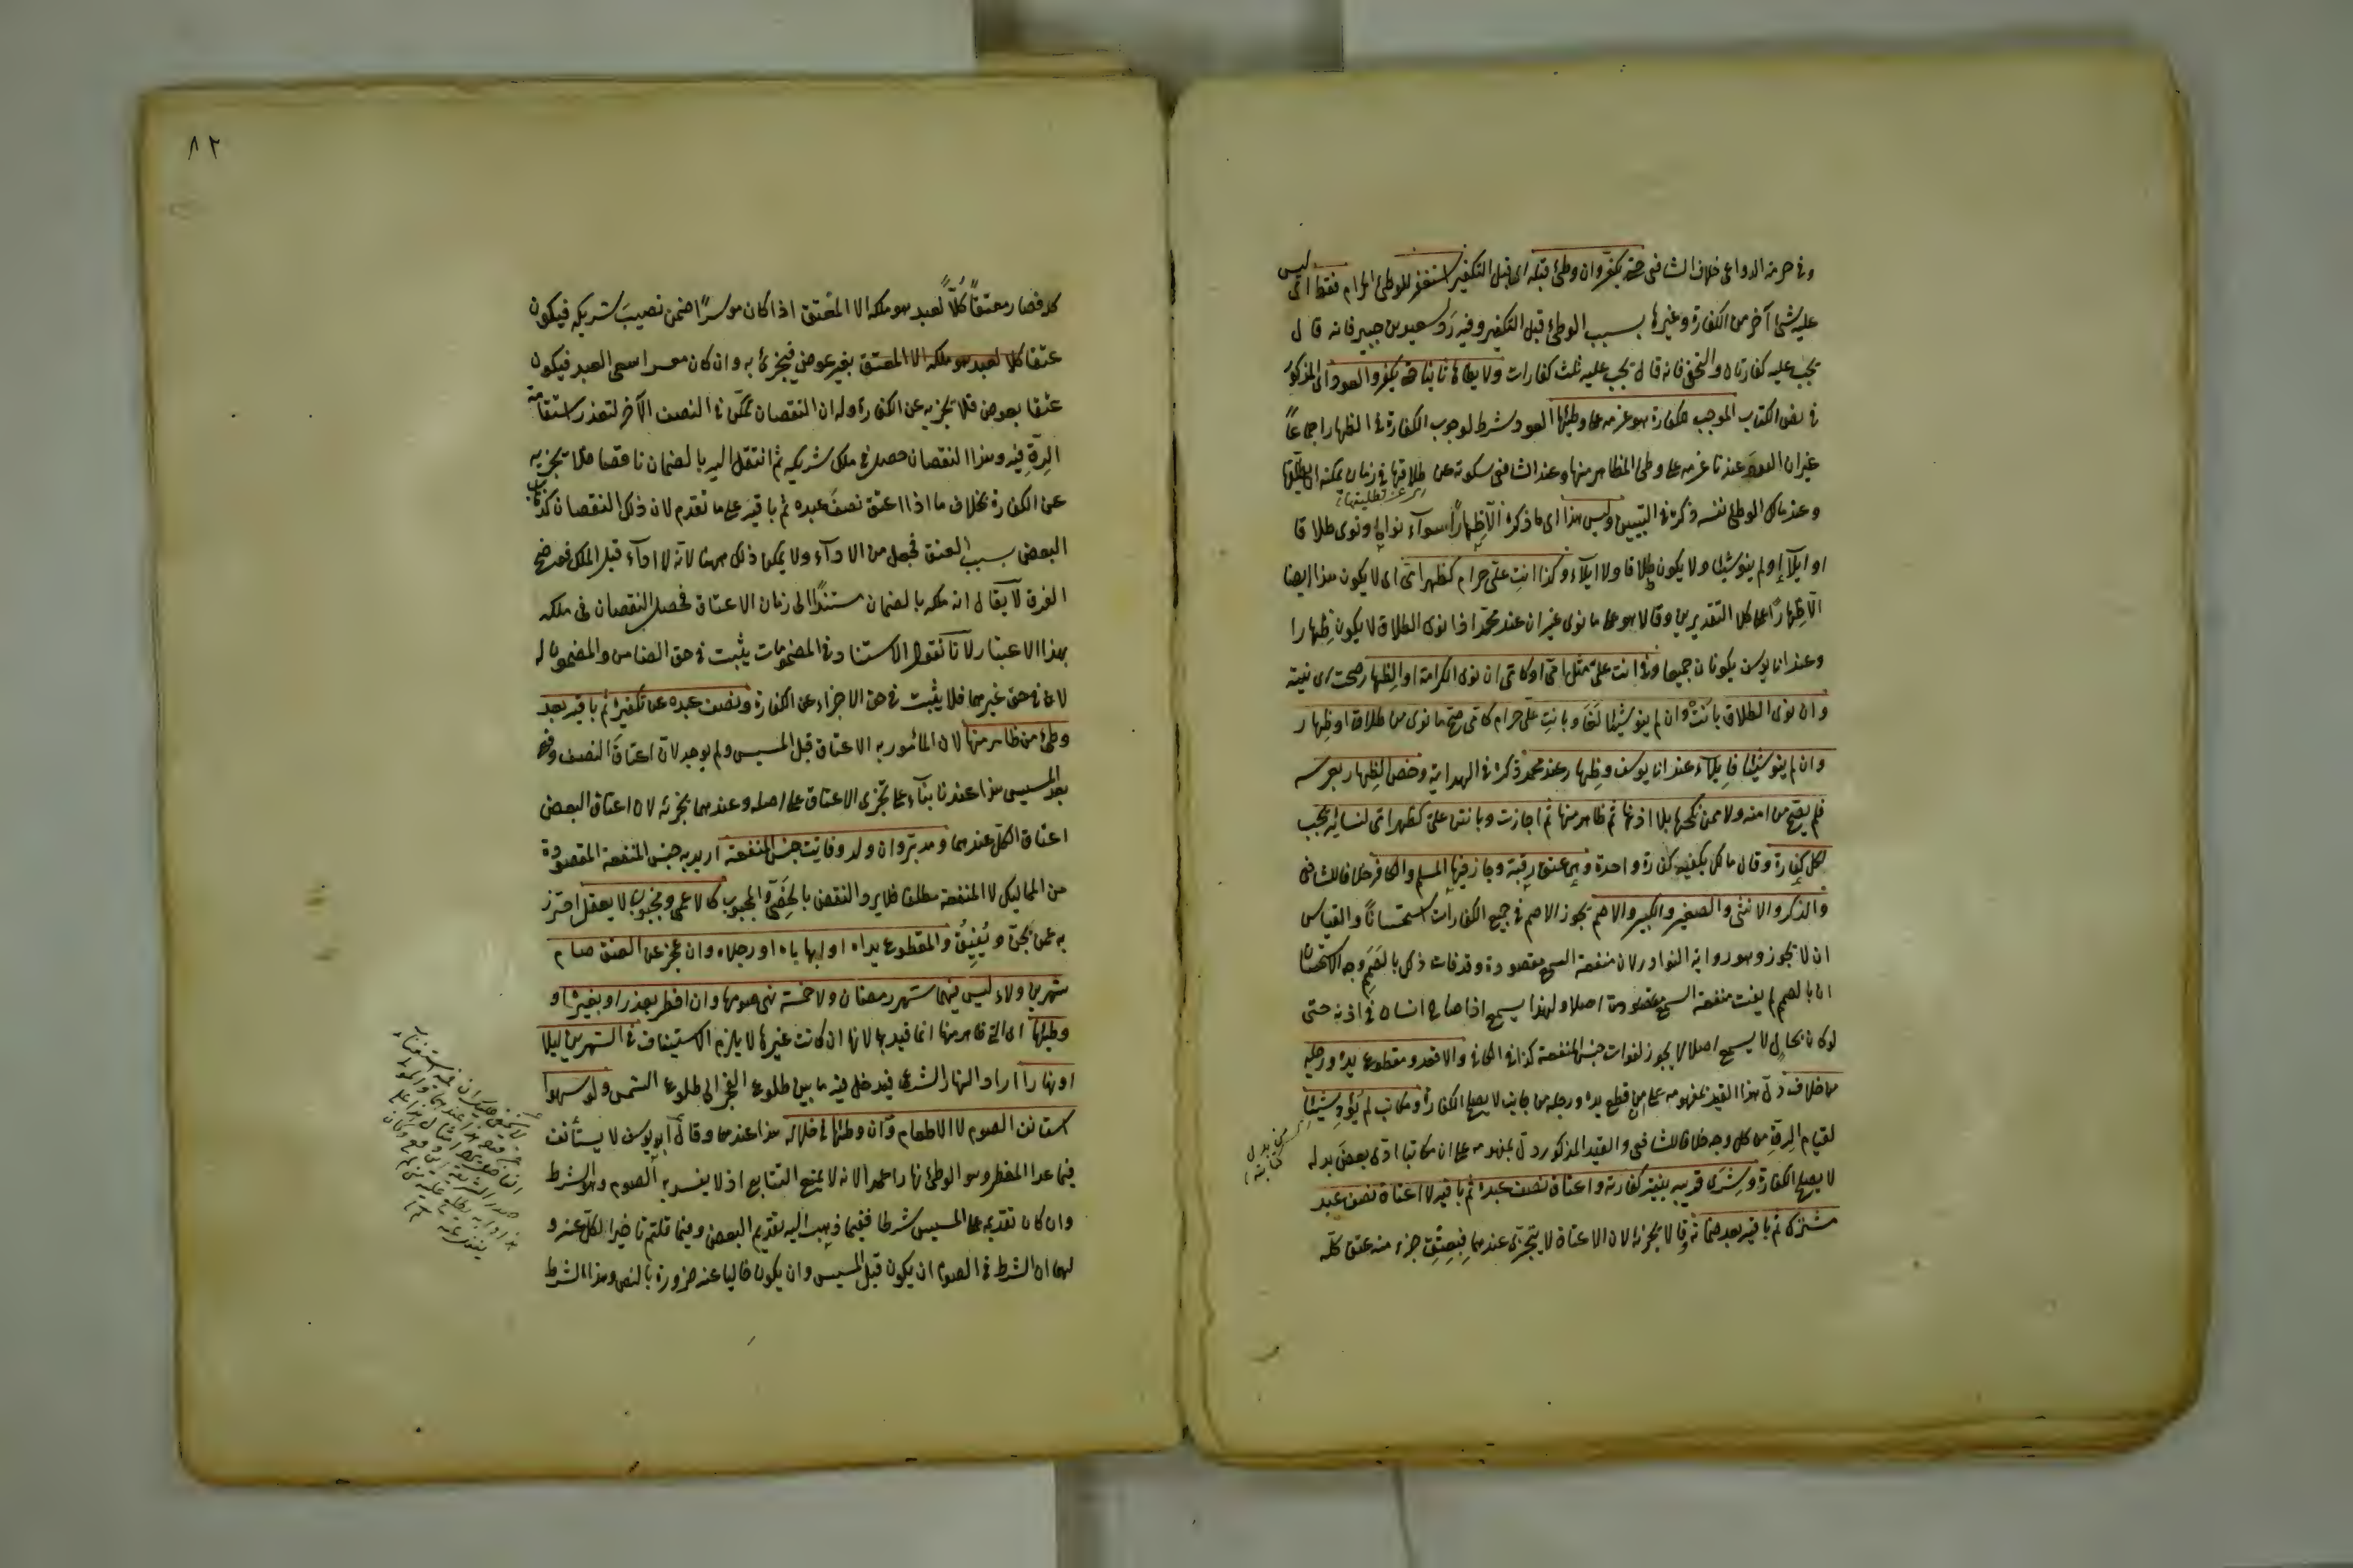 وفي حرمة الدواعي خلاف الشافعي حتى يكفر وان وطئ قبله اي قبل التكفير استغفر للوطئ الحرام فقط اي ليس
عليه شئ آخر من الكفارة وغيرها بسبب الوطئ قبل التكفير وفيه رد لسعيد بن جبير فانه قال
يجب عليه كفارتان والنخعي فانه قال يجب عليه ثلث كفارات ولا يطأها ثانيا حتى يكفر والعود اي المذكور
في نص الكتاب الموجب للكفارة هو عزمه على وطئها العود شرط لوجوب الكفارة في الظهار اجماعاً
غير ان العود عندنا عزمه على وطئ المظاهر منها وعند الشافعي سكوته عن طلاقها في زمان يمكنه ان يطلقها
وعند مالك الوطئ نفسه ذكره في التبيين وليس هذا اي ما ذكره الّا ظِهاراً سوآء نواه او نوى طلاقا
او ايلآء او لم ينو شيئا ولا يكون طلاقا ولا ايلآء وكذا انتِ عليّ حرام كظهر امّي اي لا يكون هذا ايضا
الّا ظِهاراً على كلا التقديرين وقالا هو على ما نوى غير ان عند محمّد اذا نوى الطلاق لا يكون ظِهارا
وعند ابي يوسف يكونان جميعا وفي انت عليّ مثل امّي او كامّي ان نوى الكرامة او الظِهار صحت اي نيته
وان نوى الطلاق بانتْ وان لم ينو شيئا لَغَا وبانتِ عليّ حرام كامّي صحّ ما نوى من طلاق او ظِهار
وان لم ينو شيئا فايلآء عند ابي يوسف وظِهار عند محمد ذكره في الهداية وخصّ الظِهار بعرسه
فلم يصحّ من امته ولا ممن نكحها بلا اذنها ثم ظاهر منها ثم اجازت وبانتن عليّ كظهر امّي لنسائه تجب
لكل كفارة وقال مالك يكفيه كفارة واحدة وهي عتق رقبة وجاز فيها المسلم والكافر خلافا للشافعي
والذكر والانثى والصغير والكبير والاصم تجوز الاصم في جميع الكفارات استحسانًا والقياس
ان لا تجوز وهو رواية النوادر لان منفعة السمع مقصودة وقد فات ذلك بالصَمَم وجه الاستحسان
ان بالصمم لم يفت منفعة السمع مقصودة اصلا ولهذا يسمع اذا صاح انسان في اذنه حتى
لو كان بحال لا يسمع اصلا لا يجوز لفوات جنس المنفعة كذا في الكافي والاقعد ومقطوع يده ورجله
من خلاف دلّ هذا القيد بمفهومه على ان من قطع يده ورجله من جانب لا يصلح الكفارة ومكاتب لم يُؤدِ شيئًا
من بدل كتابته
لقيام الرِقّ من كل وجه خلافا للشافعي والقيد المذكور دلّ بمفهومه على ان مكاتبا ادى بعض بدله
لا يصلح الكفارة وشِرَى قريبه بنية كفارته واعتاق نصف عبده ثم باقيه لا اعتاق نصف عبد
مشترك ثم باقيه بعد ضمانه وقالا يجزئه لان الاعتاق لا يتجزى عندهما فبعتق جزء منه عتق كلّه
٨٢
كله فصار معتقاً كُلّاً لعبد هو ملكه الا المُعتِق اذا كان موسرًا ضمن نصيبَ شريكه فيكون
عتقا كلا لعبد هو ملكه الا المعتق بغير عوض فيجزئ به وان كان معسرا سعى العبد فيكون
عتقا بعوض فلا يجزيه عن الكفارة وله ان النقصان تمكّن في النصف الآخر لتعذر استدامة
الرِقّ فيه وهذا النقصان حصل في ملك شريكه ثم انتقل اليه بالضمان ناقصا فلا يجزيه
عن الكفارة بخلاف ما اذا اعتق نصفَ عبده ثم باقيَه على ما تقدم لان ذلك النقصان
البعض بسبب العتق فجعل من الادآء ولا يمكن ذلك ههنا لانّه لا ادآء قبل الملك فوضح
الفرق لا يقال انه ملكه بالضمان مستندًا الى زمان الاعتاق فحصل النقصان في ملكه
بهذا الاعتبار لانّا نقول الاستناد في المضمونات يثبت في حق الضامن والمضمون له
لا في حق غيرهما فلا يثبت في حق الاجزاء عن الكفارة ونصف عبده عن تكفيره ثم باقيه بعد
وطئ من ظاهر منها لان المأمور به الاعتاق قبل المسيس ولم يوجد لانّ اعتاقَ النصف وقع
بعد المسيس هذا عندنا بنآء على تجزى الاعتاق على اصله وعندهما يجزئه لان اعتاق البعض
اعتاق الكلّ عندهما ومدبّر وام ولد وفايت جنس المنفعة اريد به جنس المنفعة المقصودة
من المماليك لا المنفعة مطلقا فلا يرد النقض بالخَصِيّ والمجبوب كالاعمى ومجنون لا يعقل احترز
به عمن يُجَنّ ويُفِيقُ والمقطوع يداه او ابهاماه او رجلاه وان عجز عن العتق صام
شهرين ولاء ليس فيهما شهر رمضان ولا خمسة نهى صومها وان افطر بعذر او بغيره او
وطئها اي التي ظاهر منها انما قيد بها لانها ان كانت غيرها لا يلزم الاستيناف في الشهرين ليلا
او نهارا اراد النهار الشرعي فيدخل فيه ما بين طلوع الفجر الى طلوع الشمس ولو سهوا
استانف الصوم لا الاطعام وان وطئها في خلاله هذا عندهما وقال ابو يوسف لا يستأنف
فيما عدا المفطر وهو الوطئ نهارا عمدا لانه لا يمنع التتابع اذ لا يفسد به الصوم وهو الشرط
وان كان تقديمه على المسيس شرطا ففيما ذهبت اليه تقديم البعض وفيما قلتم تاخير الكل عنه و
لهما ان الشرط في الصوم ان يكون قبل المسيس وان يكون خاليا عنه ضرورة بالنص وهذا الشرط